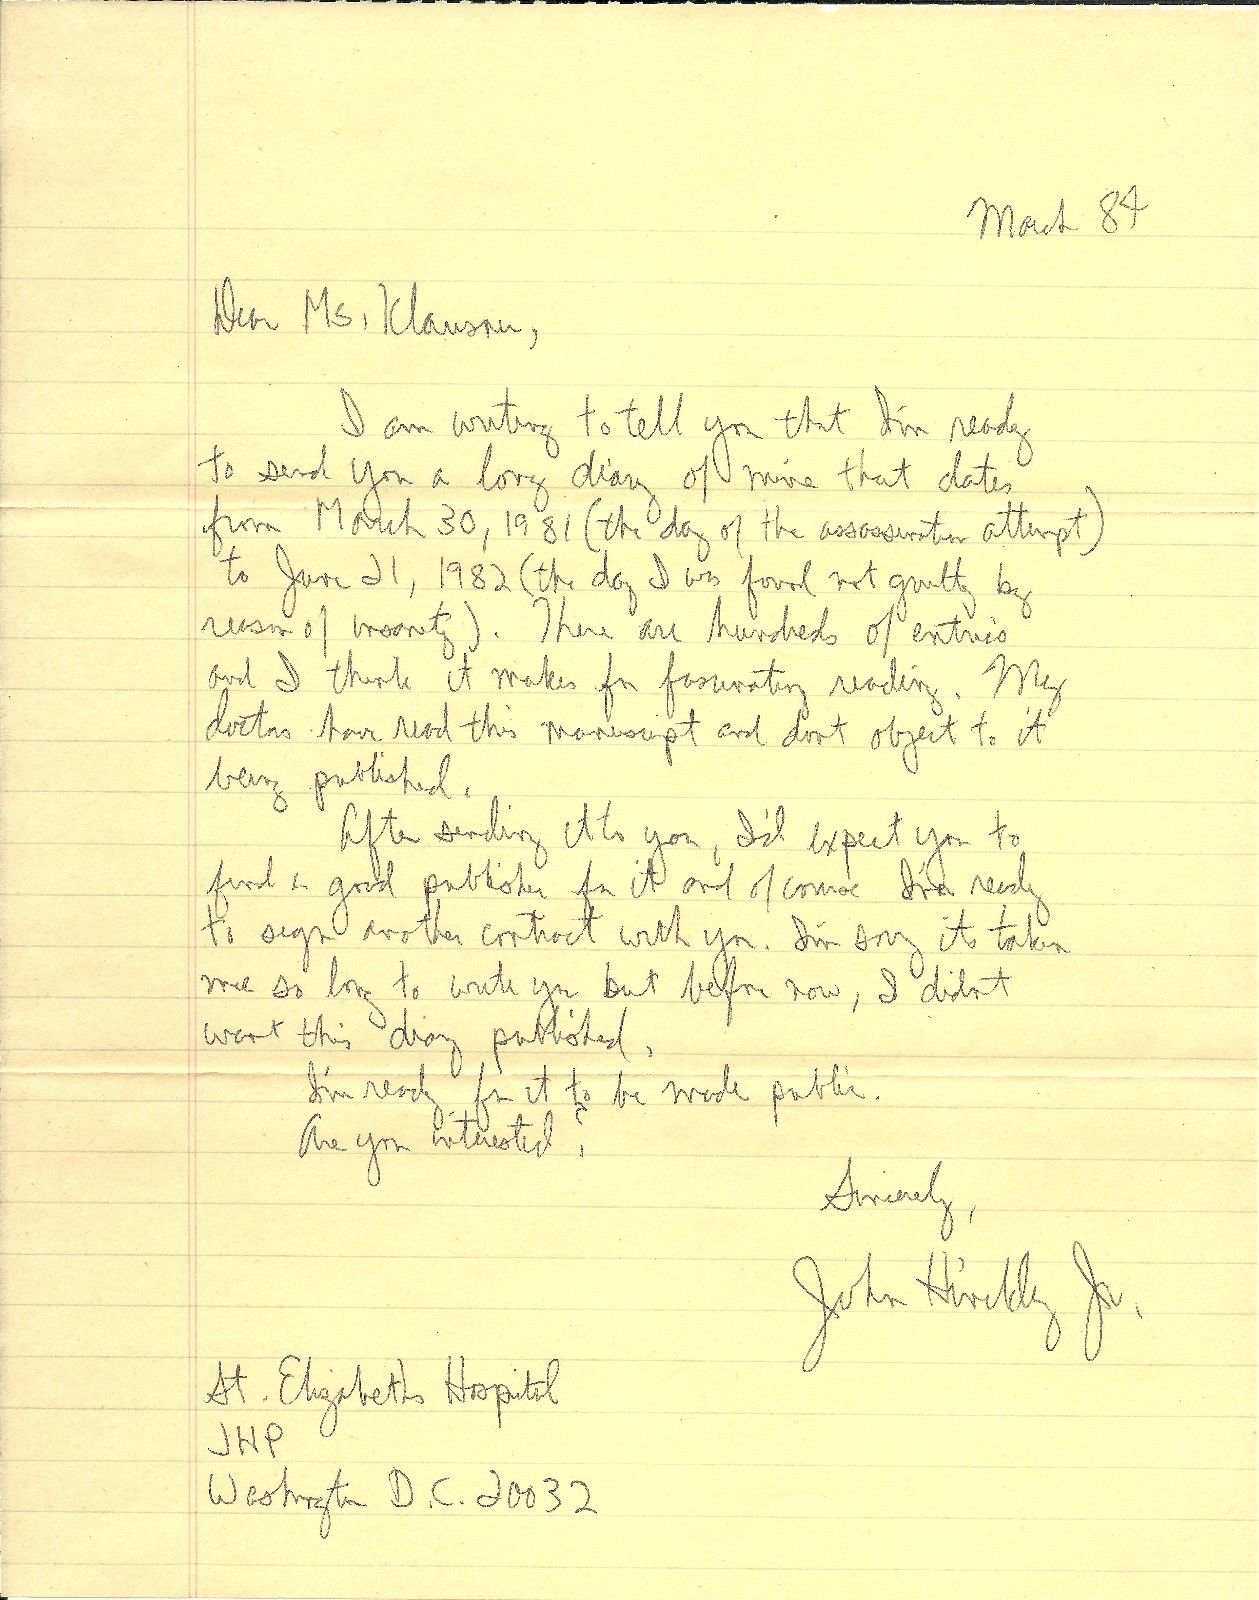 March 84
Dear Ms. Klausner,
I am writing to tell you that I'm ready
to send you a long diary of mine that dates
from March 30, 1981 (the day of the assassination attempt)
to June 21, 1982 (the day I was found not guilty by
reason of insanity). There are hundreds of entries
and I think it makes for fascinating reading. My
doctors have read this manuscript and don't object to it
being published.
After sending it to you, I'd expect you to
find a good publisher for it and of course I'm ready
to sign another contract with you. I'm sorry it's taken
me so long to write you but before now, I didn't
want this diary published.
I'm ready for it to be made public.
Are you interested?
Sincerely,
John Hinckley Jr.
St. Elizabeths Hospital
JHP
Washington D.C. 20032